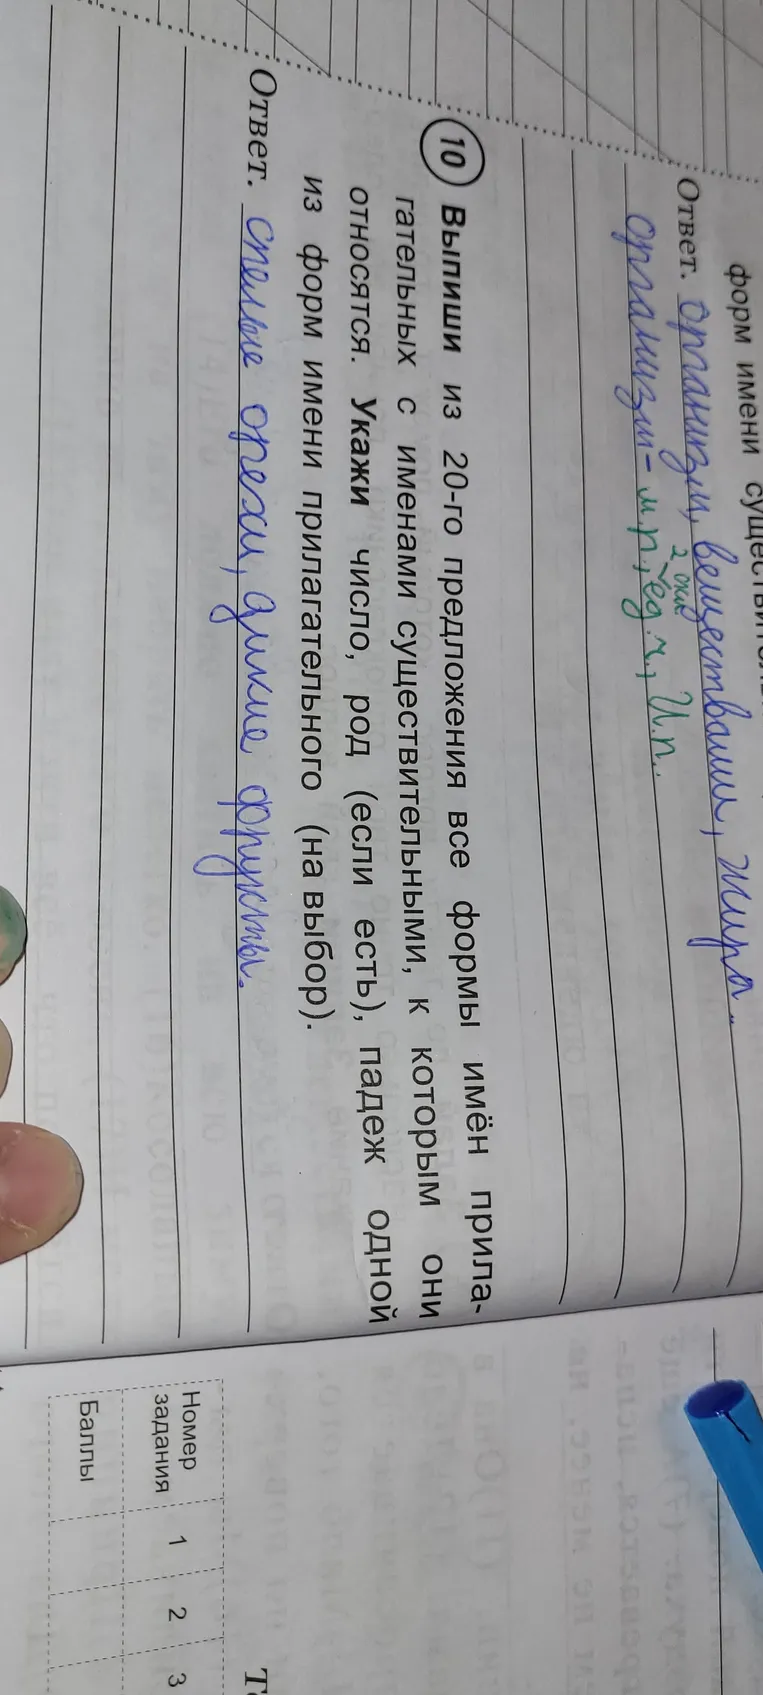 форм имени
Ответ. организм, веществами, жира.
2 скл.
организм - м.р., ед.ч., И.п.
10 Выпиши из 20-го предложения все формы имён прила-
гательных с именами существительными, к которым они
относятся. Укажи число, род (если есть), падеж одной
из форм имени прилагательного (на выбор).
Ответ. спелые орехи, дикие фрукты.
Номер задания 1 2 3
Баллы